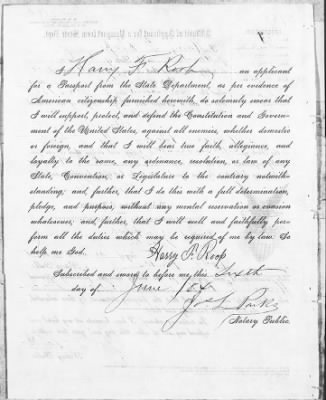 I Harry F. Roop an applicant
for a Passport from the State Department, as per evidence of
American citizenship furnished herewith, do solemnly swear that
I will support, protect, and defend the Constitution and Govern-
ment of the United States, against all enemies, whether domestic
or foreign, and that I will bear true faith, allegiance, and
loyalty to the same, any ordinance, resolution, or law of any
State, Convention, or Legislature to the contrary notwith-
standing; and, further, that I do this with a full determination,
pledge, and purpose, without any mental reservation or evasion
whatsoever; and, further, that I will well and faithfully per-
form all the duties which may be required of me by law. So
help me God.
Harry F. Roop
Subscribed and sworn to before me, this Sixth
day of June
Jos L Parks
Notary Public.